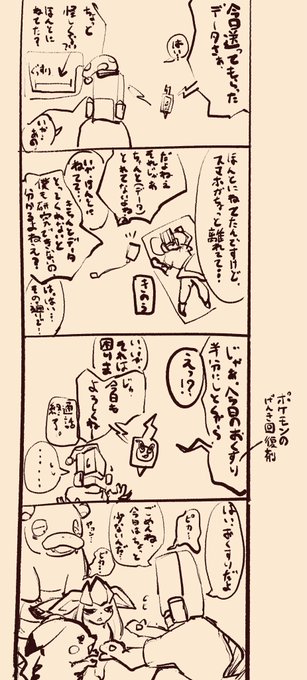 今日送ってもらった
データさぁ、
はい…
ちょっと
怪しくない?
ほんとに
ねてた?
ぐっすり
いが…
あの
ほんとにねてたんですけど、
スマホがちょっと離れてて…
だよねえ
それじゃあ
ちゃんとデータ
とれてないよね
いやほんとに
ねてて…
きちんとデータ
とってくれないと
僕も研究ができないの
分かるよねえ?
はい…
きのう
じゃあ、今日のおくすり
半分にしとくから
えっ!?
いや…
それは
困りま
じゃ
今日も
よろしくね
通話
終了。
・・・・
ポケモンの
げんき回復剤
はい、おくすりだよ
ピカ…
ごめんね、
今日はちょっと
少ないんだ…
ヤァン…
ピカ…